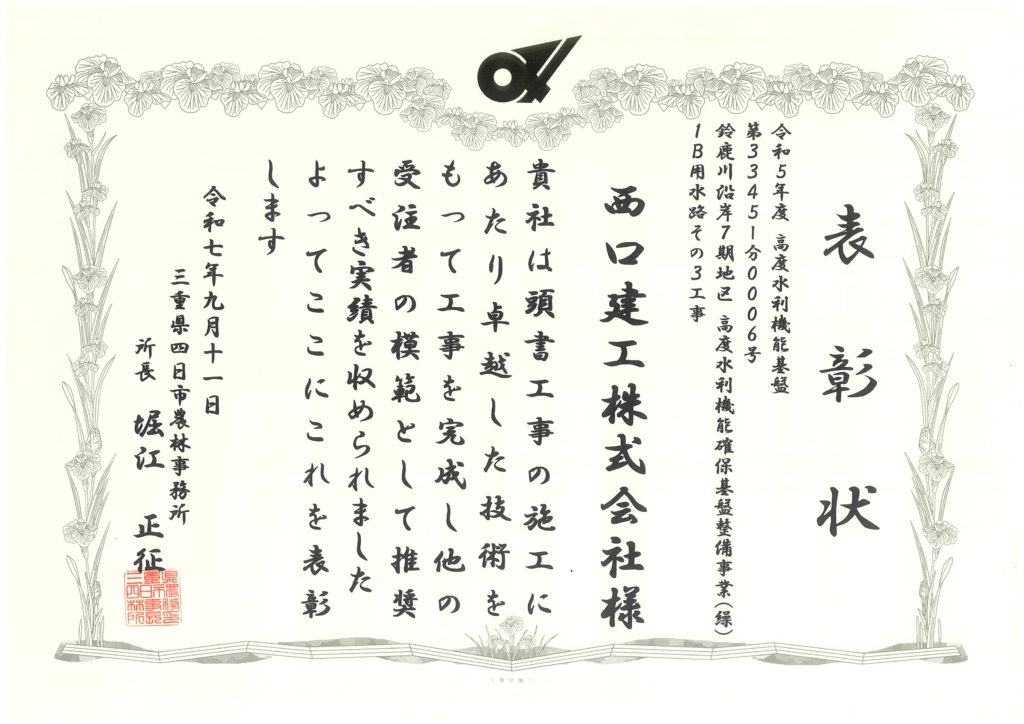 表彰状
令和5年度 高度水利機能基盤
第33451分0006号
鈴鹿川沿岸7期地区 高度水利機能確保基盤整備事業(繰)
1B用水路その3工事
西口建工株式会社様
貴社は頭書工事の施工に
あたり卓越した技術を
もって工事を完成し他の
受注者の模範として推奨
すべき実績を収められました
よってここにこれを表彰
します
令和七年九月十一日
三重県四日市農林事務所
所長 堀江 正征